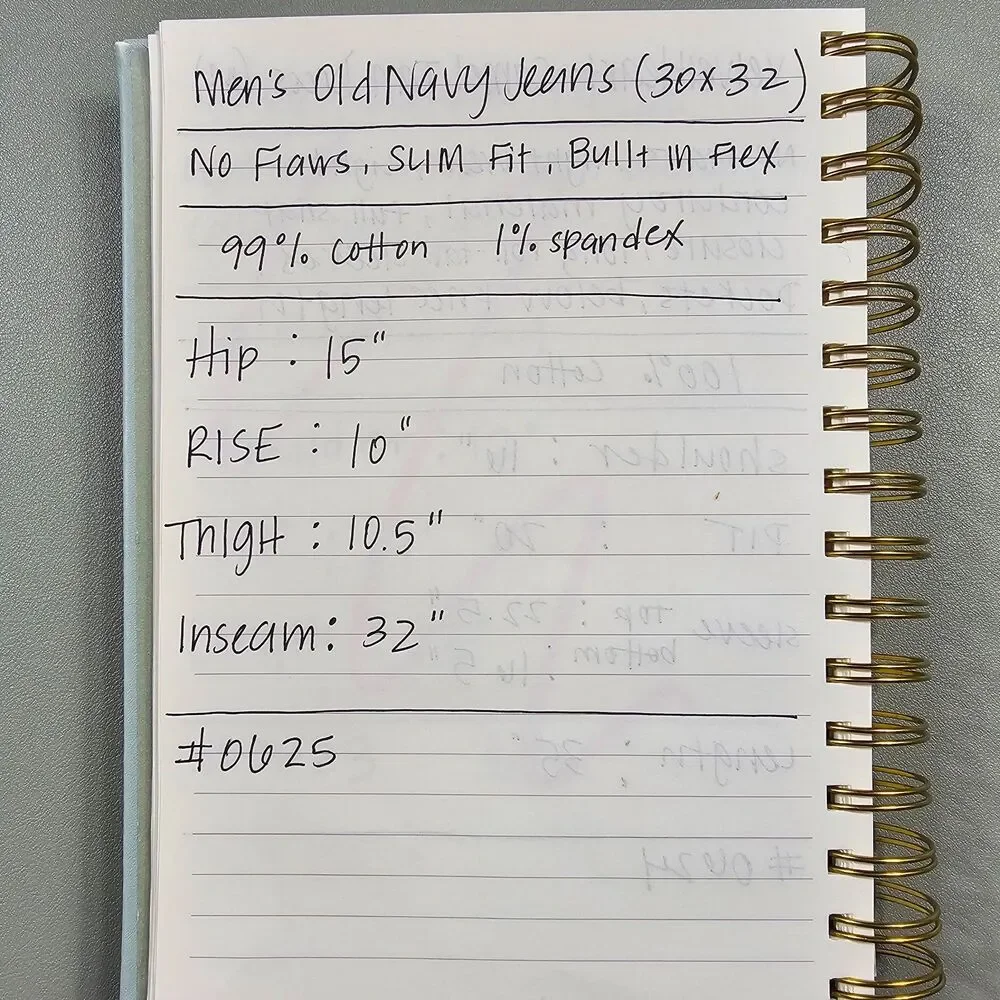 Men's Old Navy Jeans (30x32)
No Flaws, Slim Fit, Built in Flex
99% cotton 1% spandex
Hip : 15"
RISE : 10"
Thigh : 10.5"
Inseam: 32"
#0625